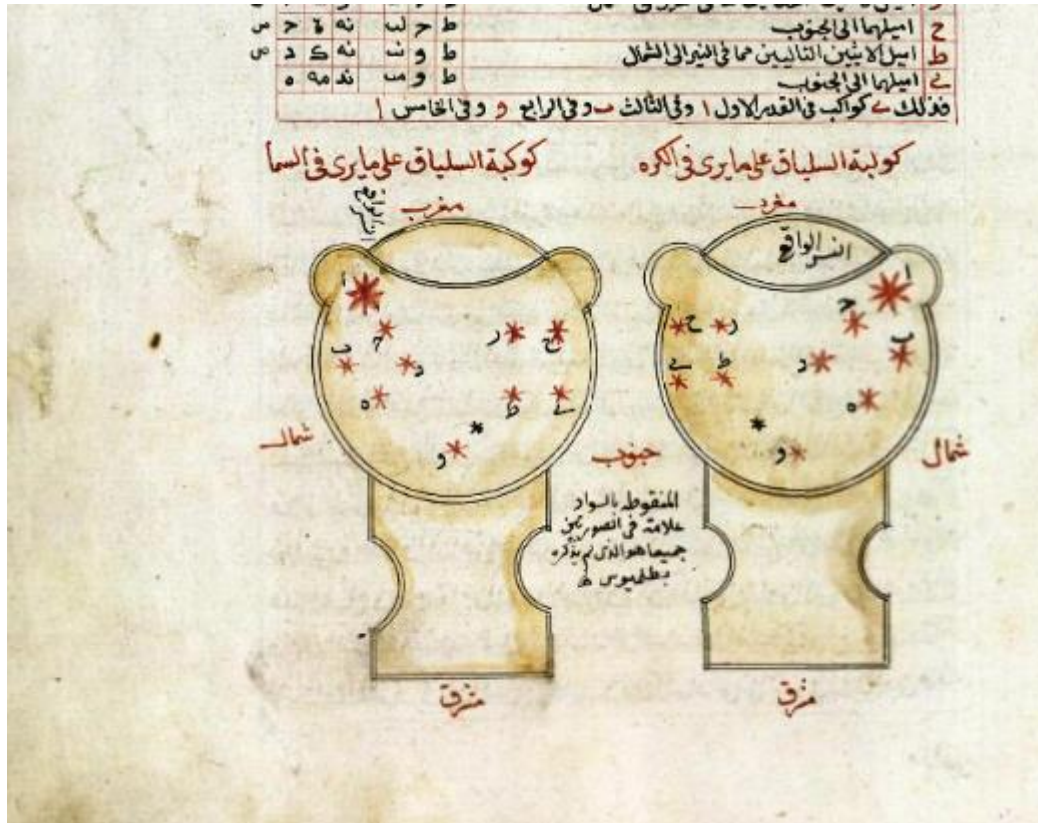 ح اميلهما الى الجنوب ط ح لب نه ه ح ص
ط اميل الاثنين التاليين مما فى النير الى الشمال ط و نب نه ك د ص
ى اميلهما الى الجنوب ط و مب ند مه ه
فذلك ى كواكب فى القدر الاول ا وفى الثالث ب وفى الرابع و وفى الخامس ا
كوكبة السلياق على مايرى فى الكره
كوكبة السلياق على مايرى فى السما
مغرب
النسر الواقع
ا
ح
ب
ر
ح
د
ط
ى
ه
و
شمال
مشرق
النسر الواقع
مغرب
ا
ح
ب
د
ر
ح
ه
ط
ى
و
شمال
جنوب
المنقوطه بالسواد
علامته فى الصورتين
جميعا هو الذى لم يذكره
بطلميوس
مشرق